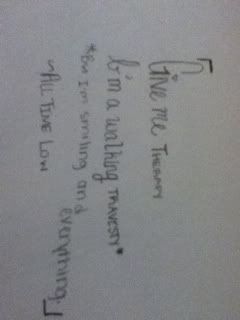 「Give me THERAPY
I'm a walking TRAVESTY*
*But I'm smiling and
everything.」
~ALL TIME LOW